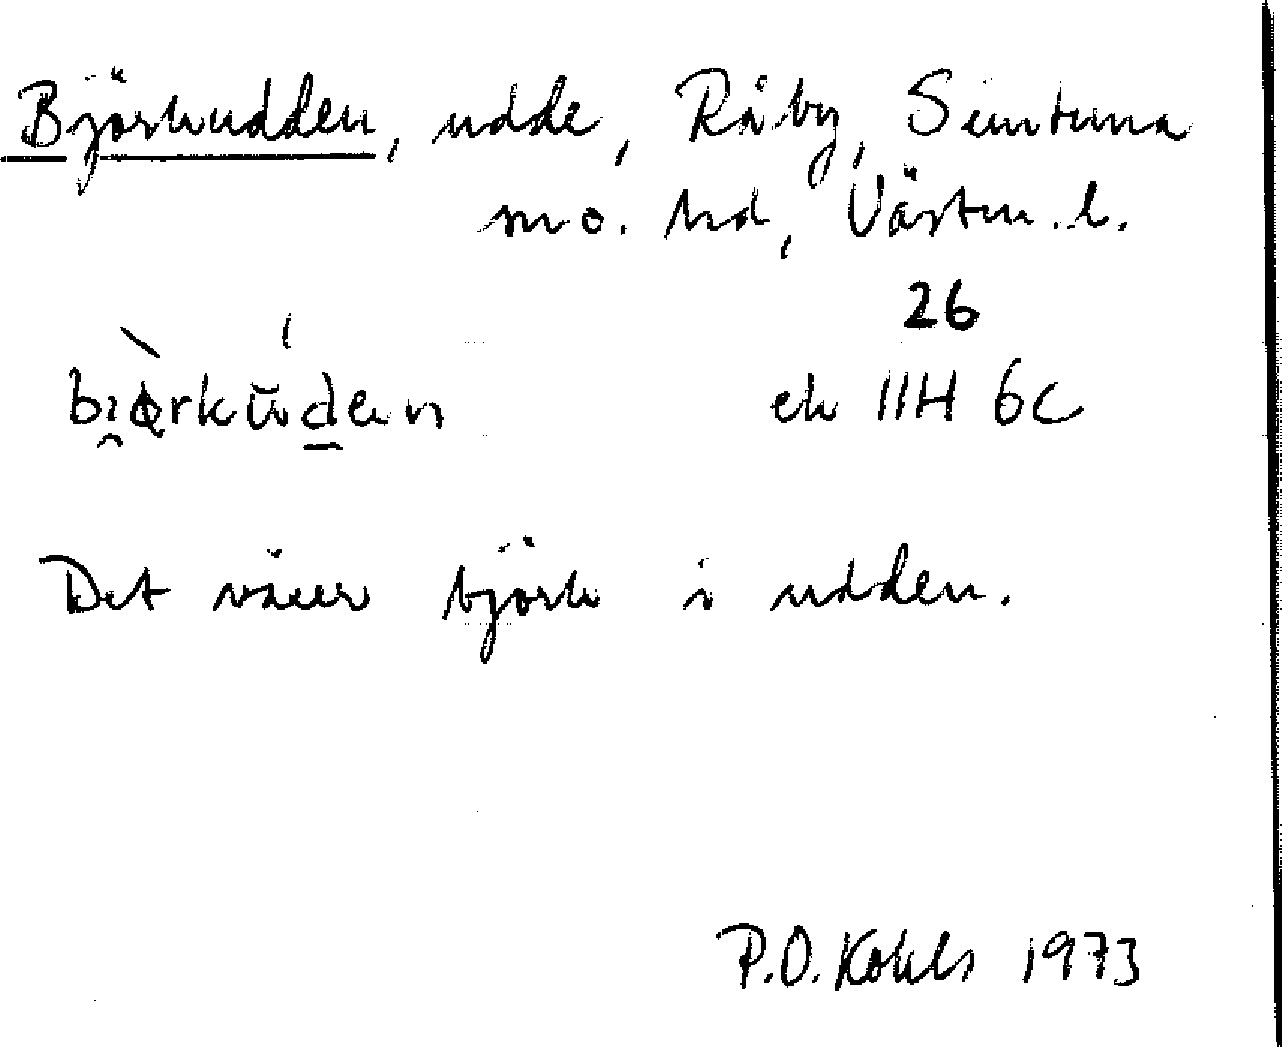 Björkudden, udde, Råby, Simtuna
sn o. hd, Västm. l.
26
ek 11H 6c
Det växer björk i udden.
P.O. Kohls 1973